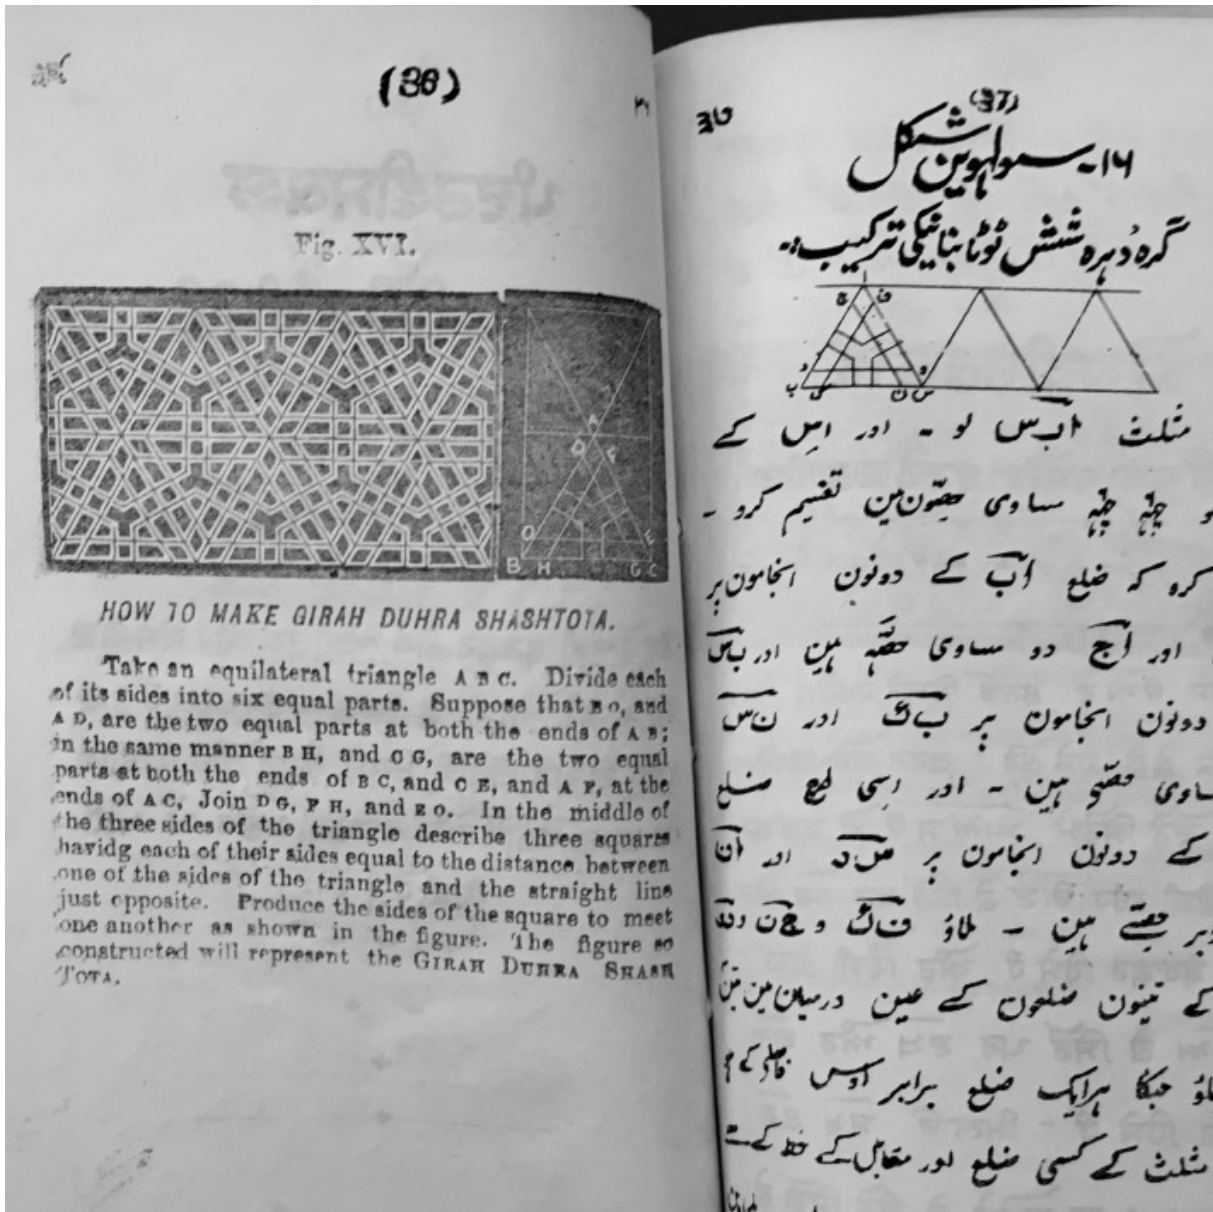 (36)
٣٦
Fig. XVI.
A
D F
O E
B H G C
HOW TO MAKE GIRAH DUHRA SHASHTOTA.
Take an equilateral triangle A B C. Divide each
of its sides into six equal parts. Suppose that B O, and
A D, are the two equal parts at both the ends of A B;
in the same manner B H, and C G, are the two equal
parts at both the ends of B C, and C E, and A F, at the
ends of A C, Join D G, F H, and E O. In the middle of
the three sides of the triangle describe three squares
havidg each of their sides equal to the distance between
one of the sides of the triangle and the straight line
just opposite. Produce the sides of the square to meet
one another as shown in the figure. The figure so
constructed will represent the GIRAH DUHRA SHASH
TOTA.
(37)
੩੭
۱۶۔ سولہوین شکل
گرہ دُہرہ شش ٹوٹا بنانیکی ترکیب :۔
مثلث اب س لو ۔ اور اس کے
چھہ چھہ مساوی حصّون مین تقسیم کرو ۔
کرو کہ ضلع اب کے دونون انجامون پر
اور اج دو مساوی حصّہ ہین اور ب س
دونون انجامون پر ب ک اور ن س
حصّی ہین ۔ اور اسی طرح ضلع
کے دونون انجامون پر اور
حصّے ہین ۔ ملاؤ ف ک و ج ن
کے تینون ضلعون کے عین درمیان مین تین
جسکا ہر ایک ضلع برابر اوس فاصلے کے
مثلث کے کسی ضلع اور مقابل کے خط کے